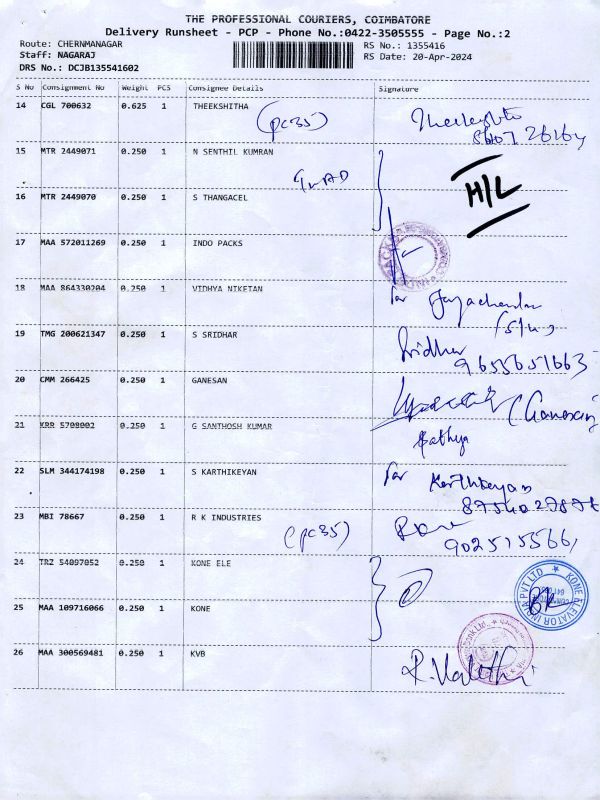 THE PROFESSIONAL COURIERS, COIMBATORE
Delivery Runsheet - PCP - Phone No.:0422-3505555 - Page No.:2
Route: CHERNMANAGAR
Staff: NAGARAJ
DRS No.: DCJB135541602
RS No.: 1355416
RS Date: 20-Apr-2024
S No Consignment No Weight PCS Consignee Details Signature
14 CGL 700632 0.625 1 THEEKSHITHA
(pc35)
15 MTR 2449071 0.250 1 N SENTHIL KUMRAN
H/L
16 MTR 2449070 0.250 1 S THANGACEL
17 MAA 572011269 0.250 1 INDO PACKS
18 MAA 864330204 0.250 1 VIDHYA NIKETAN
for Jayachandran
19 TMG 200621347 0.250 1 S SRIDHAR
Sridhar
9655651663
20 CMM 266425 0.250 1 GANESAN
(Ganesan)
21 KRR 5708002 0.250 1 G SANTHOSH KUMAR
Sathya
22 SLM 344174198 0.250 1 S KARTHIKEYAN
for Karthikeyan
23 MBI 78667 0.250 1 R K INDUSTRIES
(pc35)
24 TRZ 54097052 0.250 1 KONE ELE
KONE ELEVATOR INDIA PVT LTD
25 MAA 109716066 0.250 1 KONE
26 MAA 300569481 0.250 1 KVB